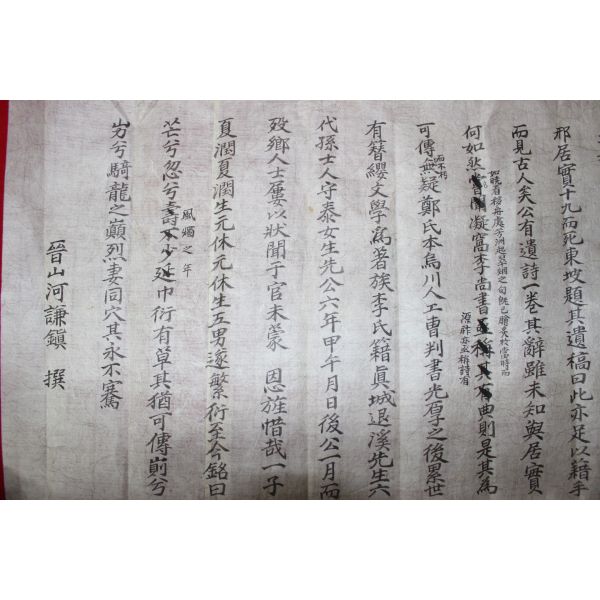 邢居實十九而死東坡題其遺稿曰此亦足以藉手
而見古人矣公有遺詩一卷其辭雖未知與居實
處芳洲起草烟之句旣已膾炙於當時而
何如然凝窩李尚書曲則是其為
亦亟稱詩有
而不朽
可傳無疑鄭氏本烏川人工曹判書光厚之後累世
有簪纓文學為著族李氏籍眞城退溪先生六
代孫士人守泰女生先公六年甲午月日後公二月而
歿鄉人士屢以狀聞于官未蒙 恩旌惜哉一子
夏潤夏潤生元休元休生五男逐繁衍至今銘曰
風燭之年
芒兮忽兮壽不少延巾衍有草其猶可傳崱兮
屴兮騎龍之巔烈妻同穴其永不騫
晉山河謙鎭 撰